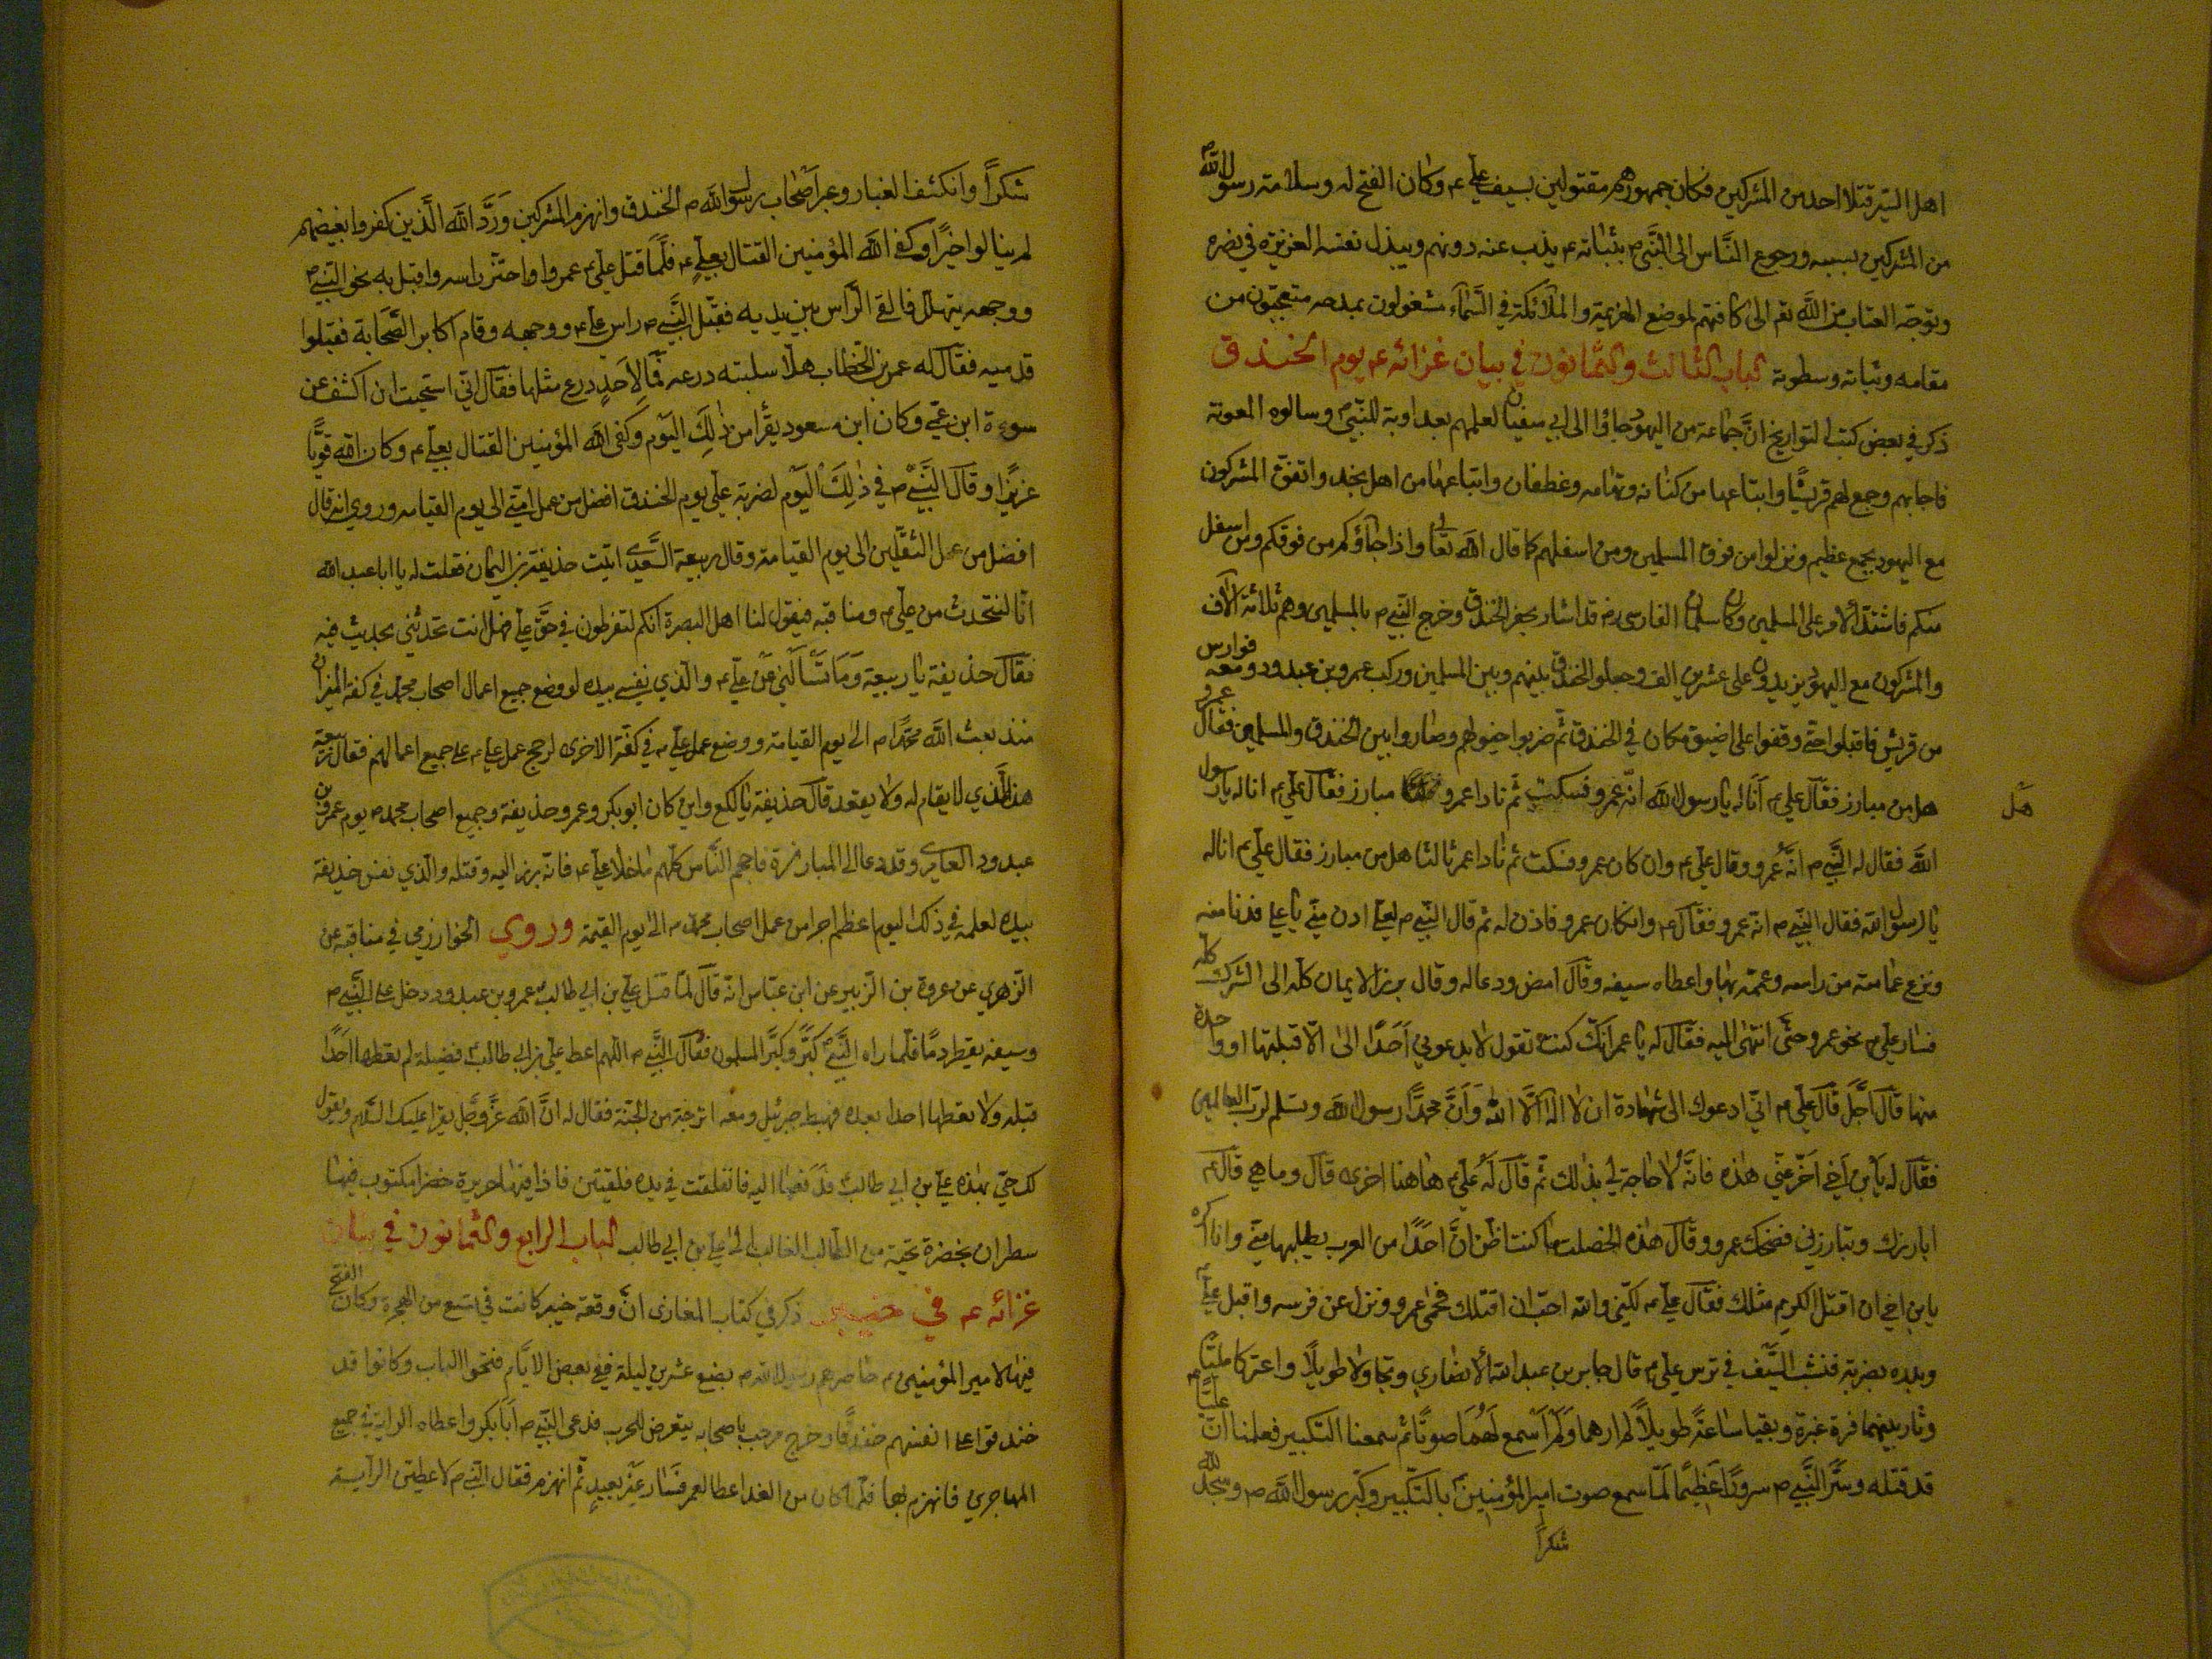 اهل السير قتلا احد من المشركين فكان جمهورهم مقتولين بسيف علي ع وكان الفتح له وسلامة رسول الله ص
من المشركين بسببه ورجوع الناس الى النبي ص بثباته ع يذب عنه دونهم ويبذل نفسه العزيزة في نصره
وتوجه العتاب من الله تعم الى كافتهم لموضع الهزيمة والملائكة في السماء مشغولون بمدحه متعجبون من
مقامه وثباته وسطوته الباب الثالث والثمانون في بيان غزائه ع يوم الخندق
ذكر في بعض كتب التواريخ ان جماعة من اليهود جاؤا الى ابي سفين لعلمهم بعداوته للنبي ص وسالوه المعونة
فاجابهم وجمع لهم قريشا واتباعها من كنانه وتهامه وغطفان واتباعها من اهل نجد واتفق المشركون
مع اليهود بجمع عظيم ونزلوا من فوق المسلمين ومن اسفلهم كما قال الله تعالى واذا جاؤكم من فوقكم ومن اسفل
منكم فاشتد الامر على المسلمين وكان سلمان الفارسى رض قد اشار بحفر الخندق وخرج النبي ص بالمسلمين وهم ثلاثة الاف
والمشركون مع اليهود يزيدون على عشرين الف وجعلوا الخندق بينهم وبين المسلمين وركب عمرو بن عبدود ومعه فوارس
من قريش فاقبلوا حتى وقفوا على اضيق مكان في الخندق ثم ضربوا خيولهم وصاروا بين الخندق والمسلمين فقال عمرو
هل من مبارز فقال علي ع انا له يا رسول الله انه عمرو فسكت ثم نادا عمرو مبارز فقال علي ع انا له يا رسول
هل
الله فقال له النبي ص انه عمرو وقال علي ع وان كان عمرو فسكت ثم نادا عمر ثالثا هل من مبارز فقال علي ع انا له
يا رسول الله فقال النبي ص انه عمرو فقال ع وان كان عمرو فاذن له ثم قال النبي ص لعلي ادن مني يا علي فدنا منه
ونزع عمامته من راسه وعممه بها واعطاه سيفه وقال امض ودعا له وقال برز الايمان كله الى الشرك كله
فسار علي ع نحو عمرو حتى انتهى اليه فقال له يا عمر انك كنت تقول لا يدعوني احدا الى الا قبلتها او واحدة
منها قال اجل قال علي ع اني ادعوك الى شهادة ان لا اله الا الله وان محمدا رسول الله وتسلم لرب العالمين
فقال له يابن اخي اخر عني هذه فانه لا حاجة لي بذالك ثم قال له علي ع هاهنا اخرى قال وما هي قال ع
ابارزك وتبارزني فضحك عمرو وقال هذه الخصلة ما كنت اظن ان احدا من العرب يطلبها مني وانا اكره
يابن اخي ان اقتل الكريم مثلك فقال علي ع لكني والله احب ان اقتلك فحمى عمرو ونزل عن فرسه واقبل علي ع
وبدره بضربة فنشب السيف في ترس علي ع قال جابر بن عبد الله الانصاري وتجاولا طويلا واعتركا مليا
وثار بينهما فرة غبرة وبقيا ساعة طويلا لم ارهما ولم اسمع لهما صوتا ثم سمعنا التكبير فعلمنا ان عليا ع
قد قتله وسر النبي ص سرورا عظيما لما سمع صوت امير المؤمنين ع بالتكبير وكبر رسول الله ص وسجد لله
شكرا
شكرا وانكشف الغبار وعبر اصحاب رسول الله ص الخندق وانهزم المشركين ورد الله الذين كفروا بغيضهم
لم ينالوا خيرا وكفا الله المؤمنين القتال بعلي ع فلما قتل علي ع عمروا واحتز راسه واقبل به نحو النبي ص
ووجهه يتهلل فالقى الراس بين يديه فقبل النبي ص راس علي ع ووجهه وقام اكابر الصحابة فقبلوا
قدميه فقال له عمر بن الخطاب هلا سلبته درعه فما لاحد درع مثلها فقال اني استحيت ان اكشف عن
سوءة ابن عمي وكان ابن مسعود يقرأ من ذلك اليوم وكفى الله المؤمنين القتال بعلي ع وكان الله قويا
عزيزا وقال النبي ص في ذلك اليوم لضربة علي يوم الخندق افضل من عمل امتي الى يوم القيامه وروي انه قال
افضل من عمل الثقلين الى يوم القيامة وقال ربيعة السعدى اتيت حذيفة بن اليمان فقلت له يا ابا عبد الله
انا لنتحدث من علي ع ومناقبه فيقول لنا اهل البصرة انكم لتفرطون في حق علي فهل انت تحدثني بحديث فيه
فقال حذيفة يا ربيعة وما تسالني عن علي ع والذي نفسي بيده لو وضع جميع اعمال اصحاب محمد في كفة الميزان
منذ بعث الله محمدا ص الى يوم القيامة ووضع عمل علي ع في كفة الاخرى لرجح عمل علي ع على جميع اعمالهم فقال ربيعة
هذا الذي لا يقام له ولا يقعد قال حذيفة يا لكع واين كان ابو بكر وعمر وحذيفة وجميع اصحاب محمد ص يوم عمرو بن
عبدود العامرى وقد دعا الى المبارزة فاحجم الناس كلهم ما خلا علي ع فانه برز اليه وقتله والذي نفس حذيفة
بيده لعلمه في ذلك اليوم اعظم اجرا من عمل اصحاب محمد ص الى يوم القيمة وروي الخوارزمي في مناقبه عن
الزهري عن عروة بن الزبير عن ابن عباس انه قال لما قتل علي بن ابي طالب ع عمرو بن عبدود دخل على النبي ص
وسيفه يقطر دما فلما راه النبي ص كبر وكبر المسلمون فقال النبي ص اللهم اعط علي بن ابي طالب ع فضيلة لم تعطها احدا
قبله ولا تعطها احدا بعده فهبط جبرئيل ومعه اترجة من الجنة فقال له ان الله عز وجل يقرا عليك السلام ويقول
لك حي بهذه علي بن ابي طالب فدفعها اليه فانفلقت في يده فلقتين فاذا فيها حريرة خضرا مكتوب فيها
سطران بخضرة تحية من الطالب الغالب الى علي بن ابي طالب الباب الرابع والثمانون في بيان
غزائه ع في خيبر ذكر في كتاب المغازى ان وقعة خيبر كانت في تسع من الهجرة وكان الفتح
فيها لامير المؤمنين ع حاصرهم رسول الله ص بضع عشرين ليلة ففي بعض الايام فتحوا الباب وكانوا قد
خندقوا على انفسهم خندقا وخرج مرحب باصحابه يتعرض للحرب فدعى النبي ص ابا بكر واعطاه الراية في جميع
المهاجرين فانهزم بها فلما كان من الغد اعطا لعمر فسار غير بعيد ثم انهزم فقال النبي ص لاعطين الراية